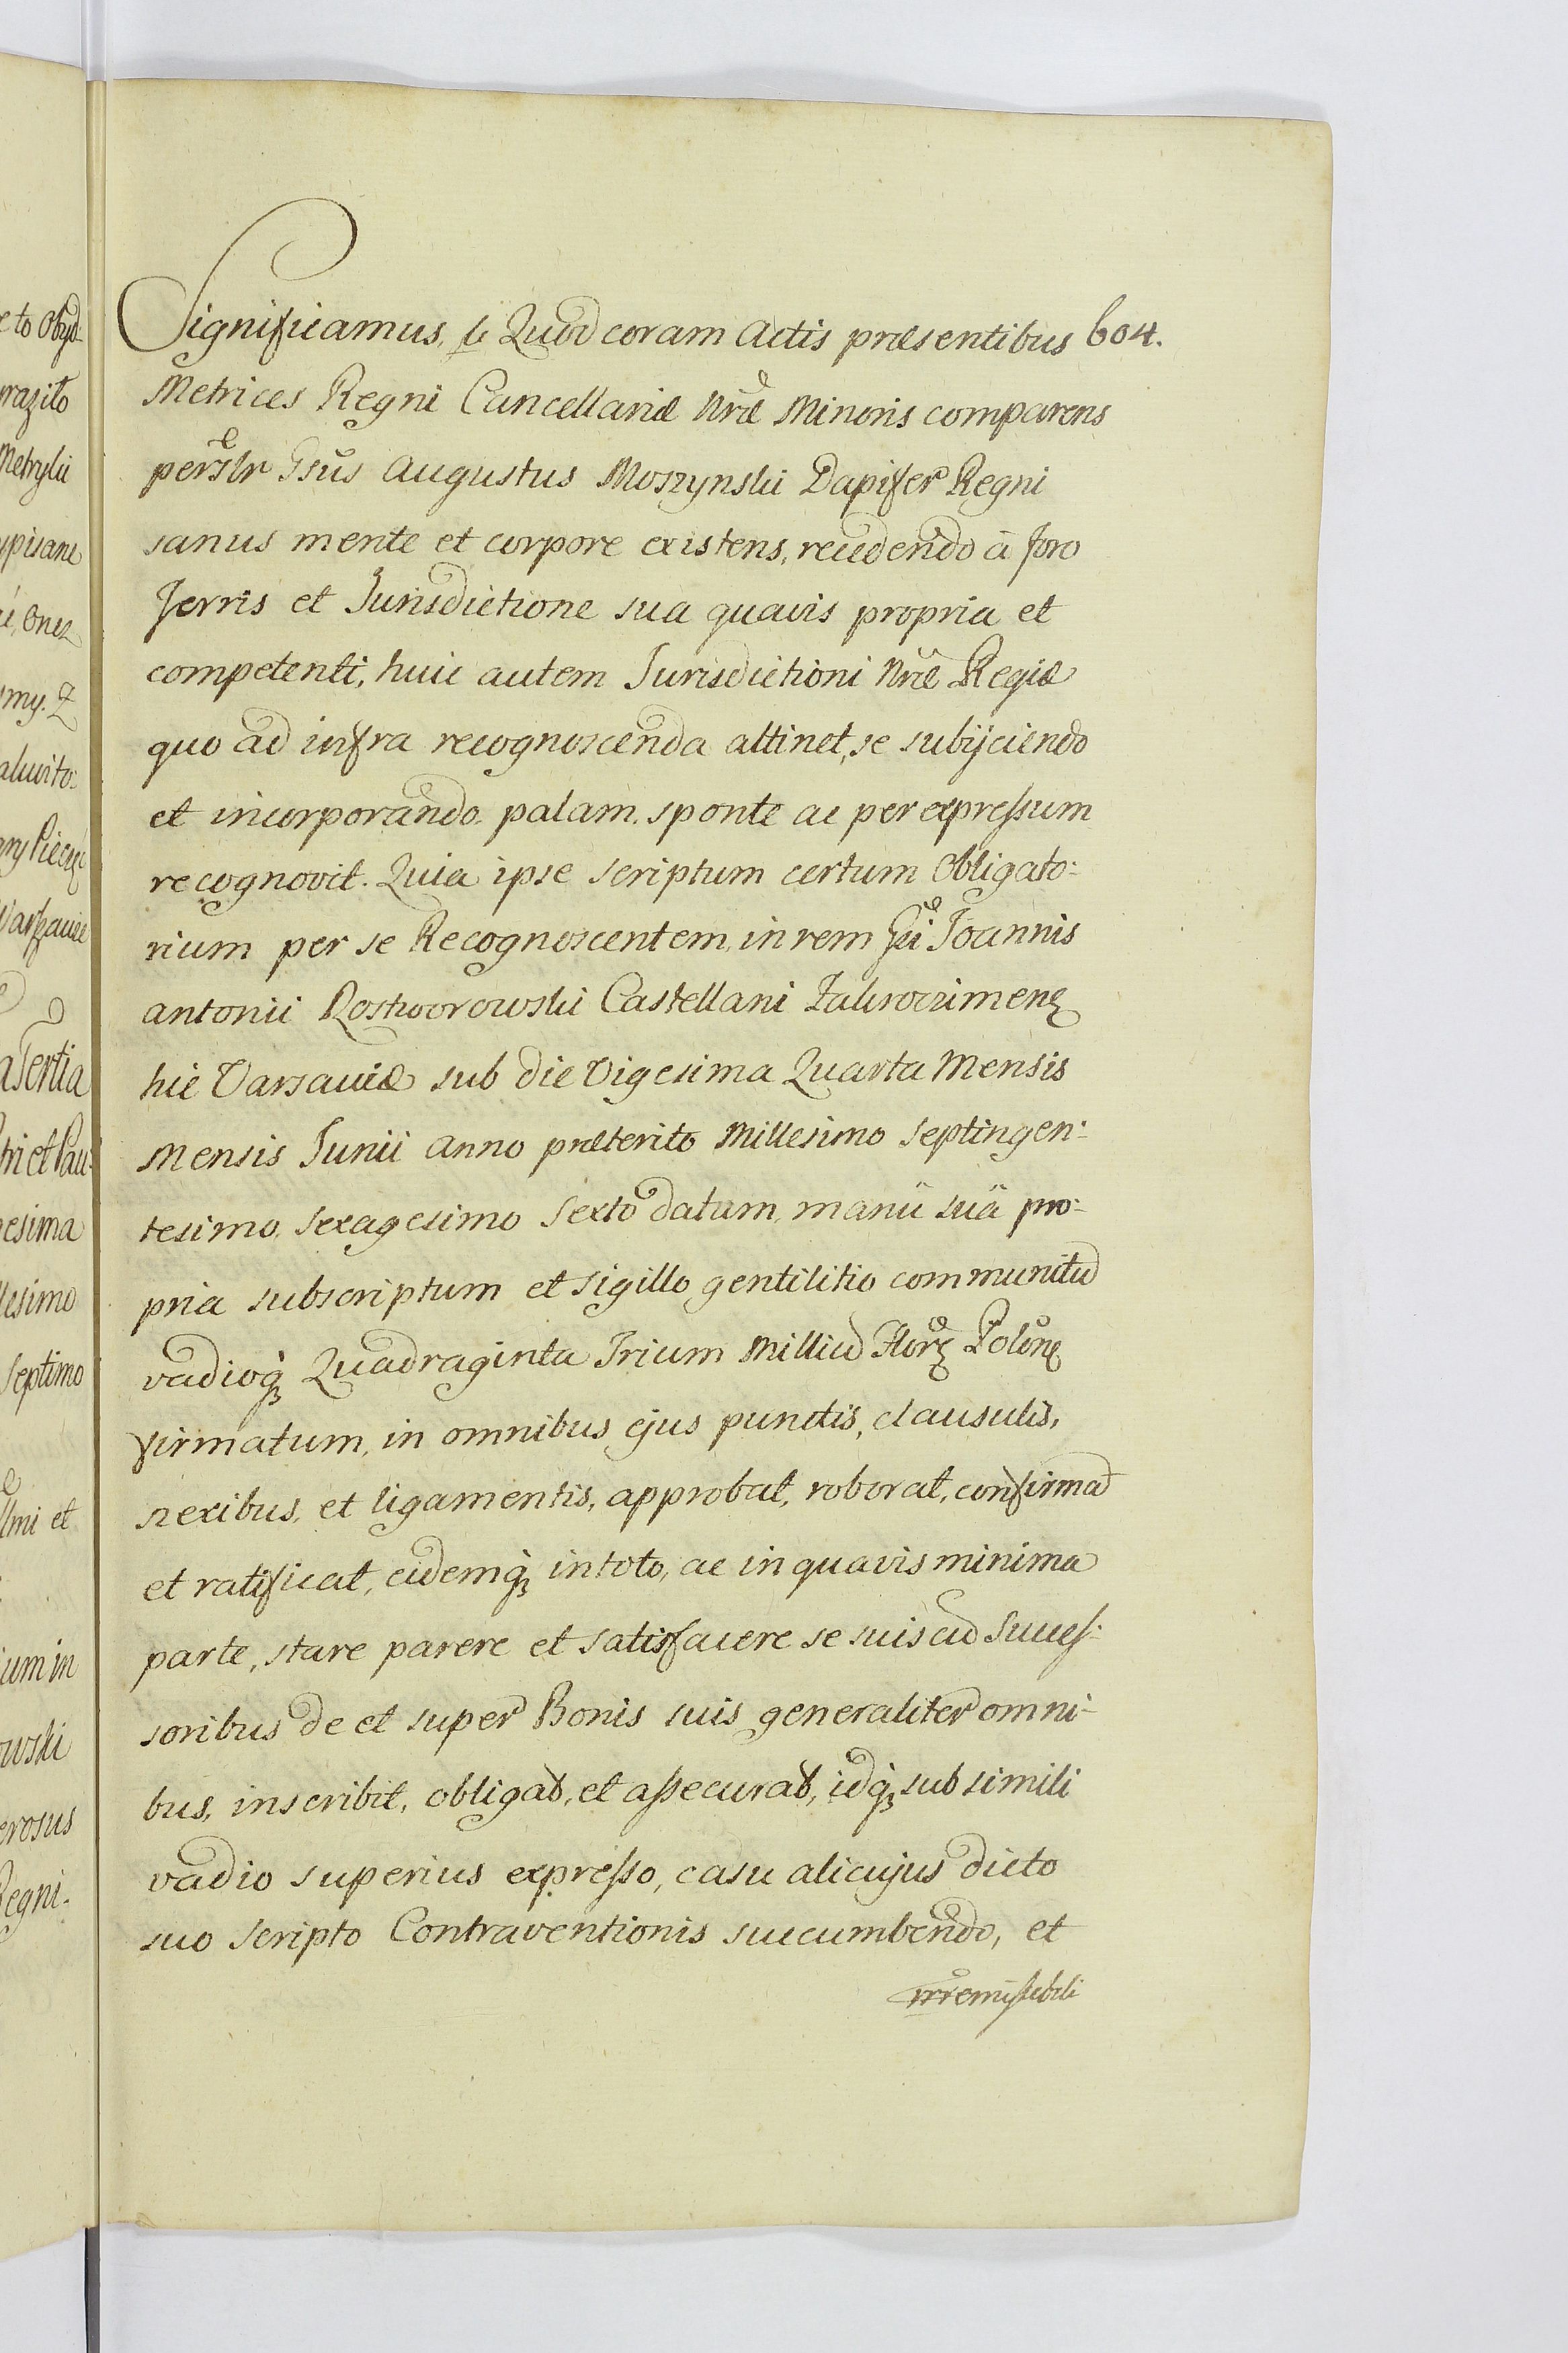 Significamus, &c Quod coram Actis præsentibus 604.
Metrices Regni Cancellariæ Nræ Minoris comparens
persslr Gsus Augustus Moszynski Dapifer Regni
sanus mente et corpore existens, recedendo à foro
Terris et Jurisdictione sua quavis propria et
competenti, huic autem Jurisdictioni Nræ Regiæ
quo ad infra recognoscenda attinet, se subijciendo
et incorporando. palam. sponte ac per expressum
recognovit. Quia ipse scriptum certum Obligato:
rium per se Recognoscentem, in rem Gsi Joannis
Antonii Rostworowski Castellani Zakroczimens
hic Varsaviæ sub die Vigesima Quarta Mensis
Mensis Junii Anno præterito Millesimo Septingen:
tesimo, Sexagesimo Sexto datum, manû suâ pro:
pria subscriptum et Sigillo gentilitio communitum
vadioq; Quadraginta Trium Millium Flor: Polon:
firmatum, in omnibus ejus punctis, clausulis,
nexibus, et ligamentis, approbat, roborat, confirmat
et ratificat, eidemq; in toto, ac in quavis minima
parte, stare parere et satisfacere se suis cum Succes:
soribus de et super Bonis suis generaliter omni-
bus, inscribit, obligat, et assecurat, idq; sub simili
vadio superius expresso, casu alicujus dicto
suo scripto Contraventionis succumbendo, et
to Obyd-
Metryki
ypisane
my. Z
ny Pieczęć
a Tertia
tri et Pau-
esima
lesimo
Septimo
lmi et
um in
owski
erosus
Regni.